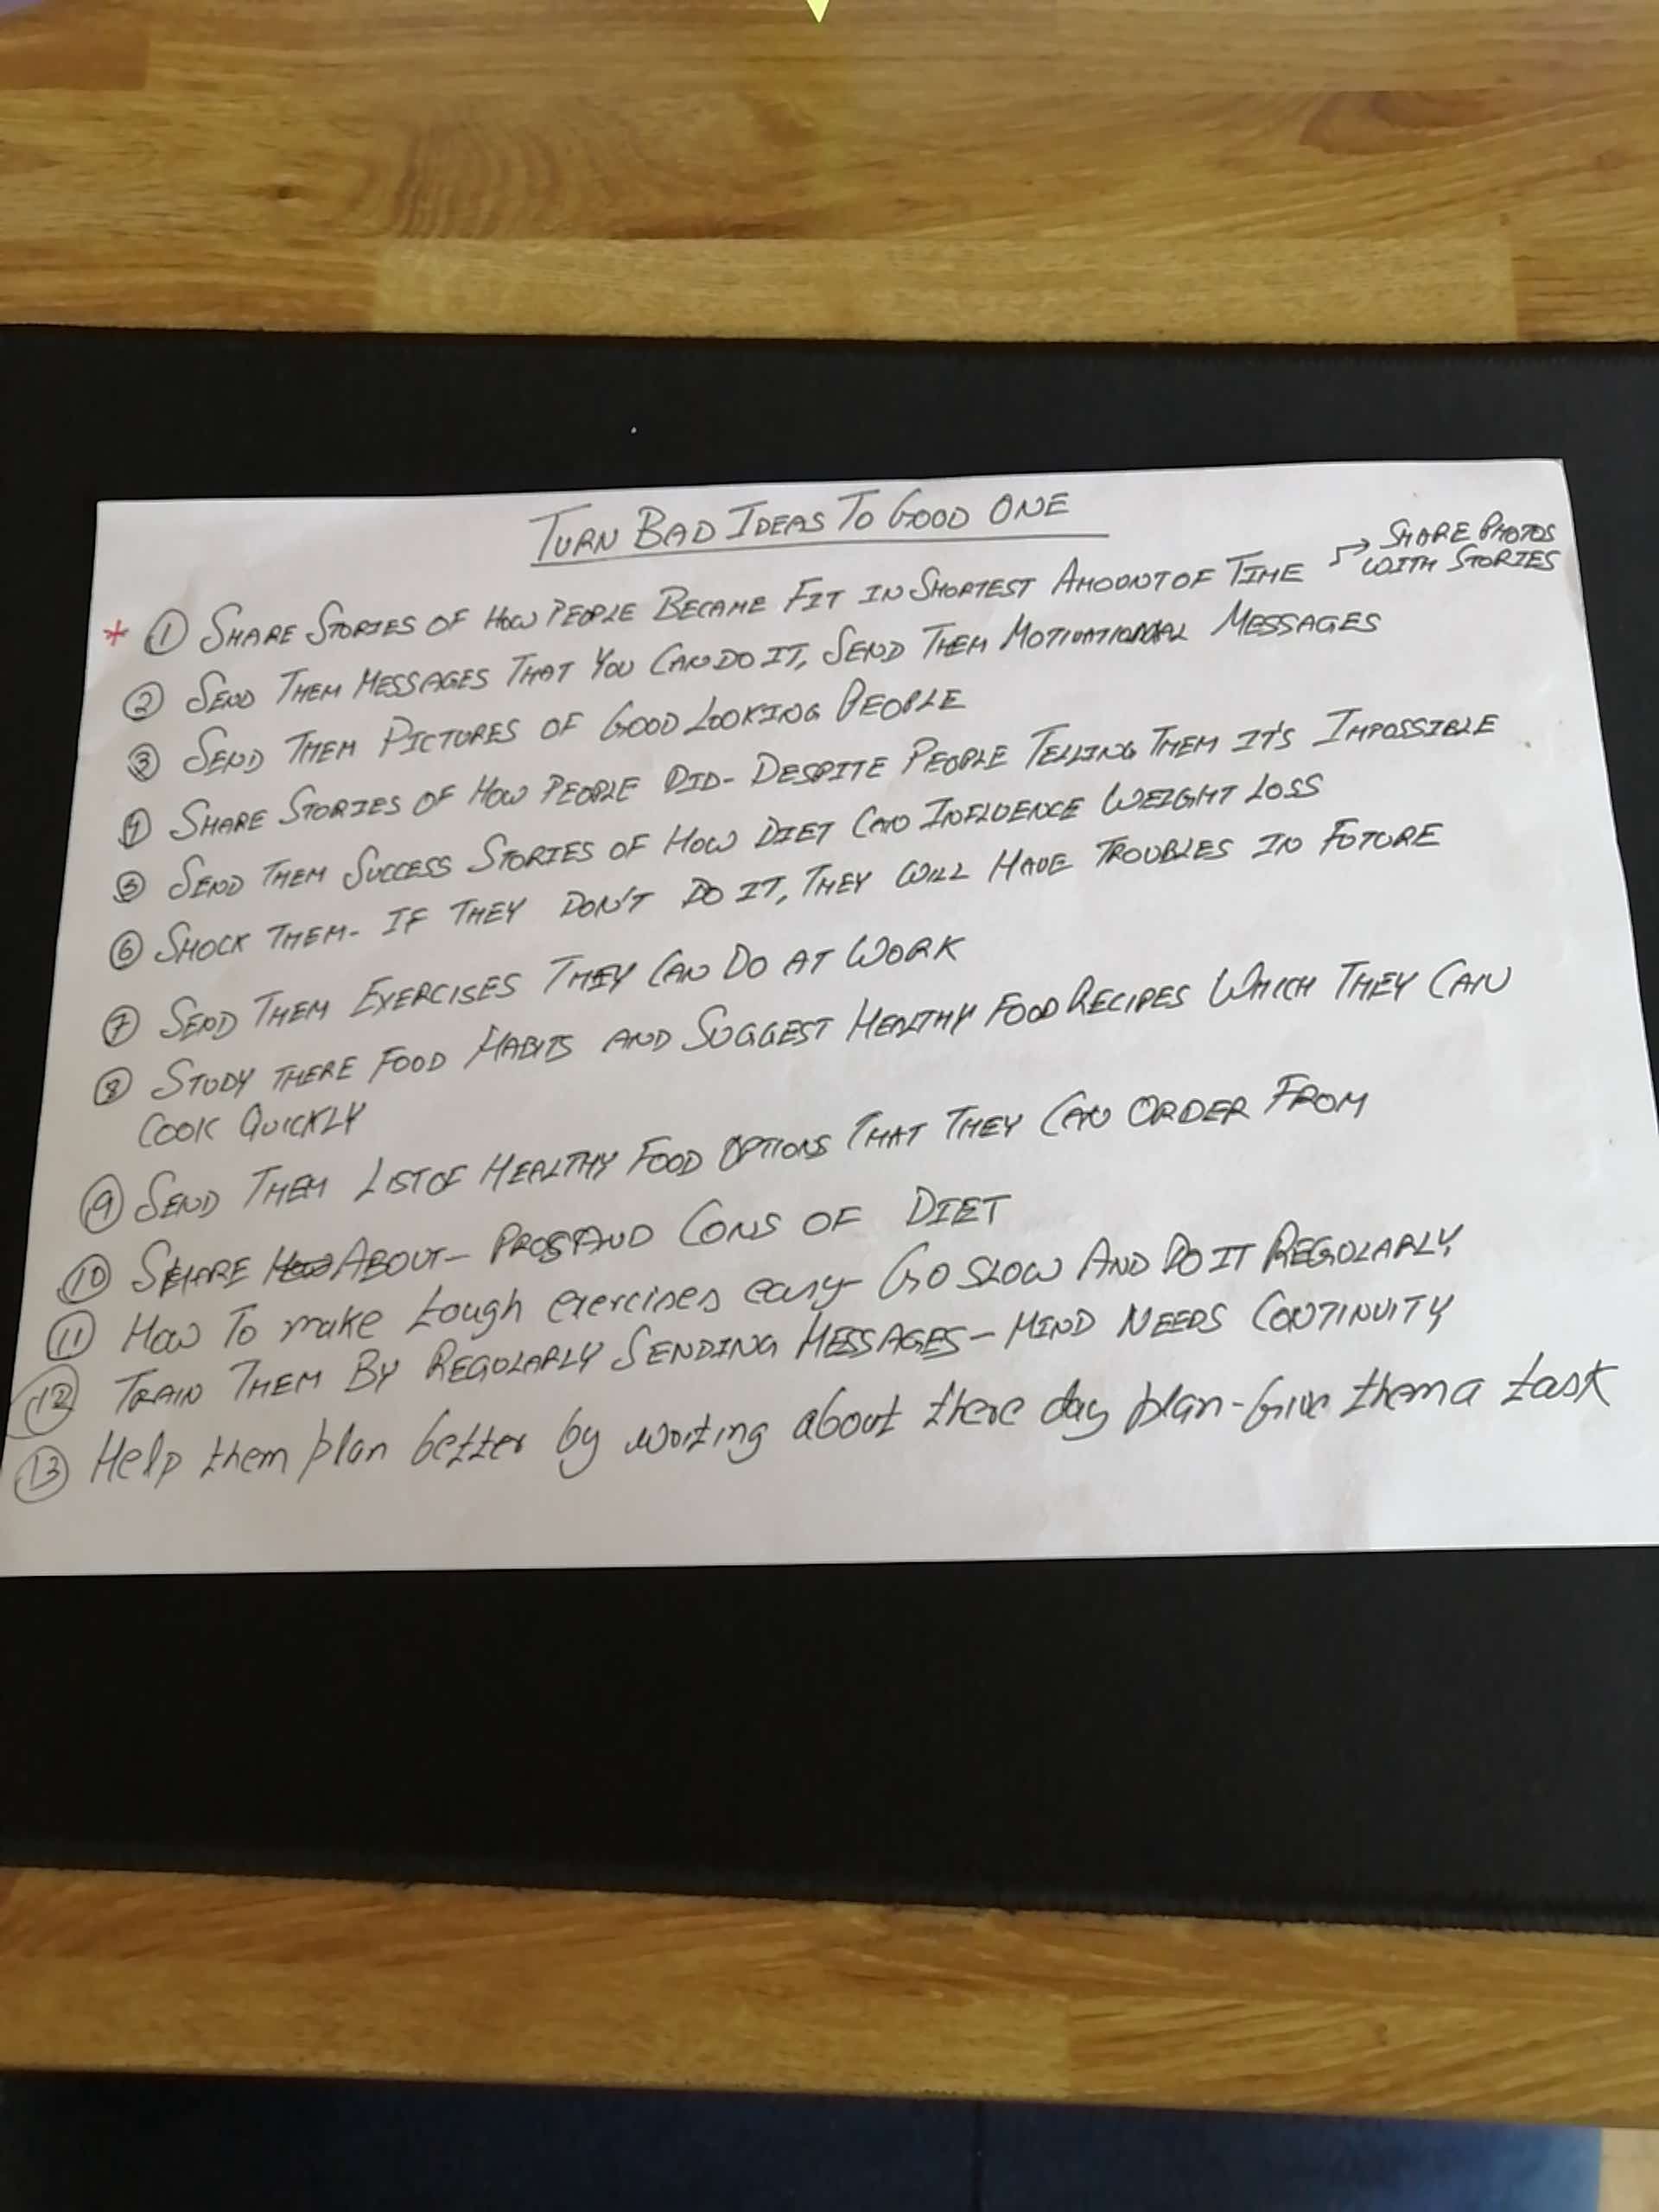 TURN BAD IDEAS TO GOOD ONE
* ① SHARE STORIES OF HOW PEOPLE BECAME FIT IN SHORTEST AMOUNT OF TIME → SHARE PHOTOS
WITH STORIES
② SEND THEM MESSAGES THAT YOU CAN DO IT, SEND THEM MOTIVATIONAL MESSAGES
③ SEND THEM PICTURES OF GOOD LOOKING PEOPLE
④ SHARE STORIES OF HOW PEOPLE DID- DESPITE PEOPLE TELLING THEM IT'S IMPOSSIBLE
⑤ SEND THEM SUCCESS STORIES OF HOW DIET CAN INFLUENCE WEIGHT LOSS
⑥ SHOCK THEM- IF THEY DON'T DO IT, THEY WILL HAVE TROUBLES IN FUTURE
⑦ SEND THEM EXERCISES THEY CAN DO AT WORK
⑧ STUDY THERE FOOD HABITS AND SUGGEST HEALTHY FOOD RECIPES WHICH THEY CAN
COOK QUICKLY
⑨ SEND THEM LIST OF HEALTHY FOOD OPTIONS THAT THEY CAN ORDER FROM
⑩ SHARE HOW ABOUT- PROS AND CONS OF DIET
⑪ HOW TO make tough exercises easy- GO SLOW AND DO IT REGULARLY
⑫ TRAIN THEM BY REGULARLY SENDING MESSAGES- MIND NEEDS CONTINUITY
⑬ Help them plan better by writing about there day plan- Give them a task